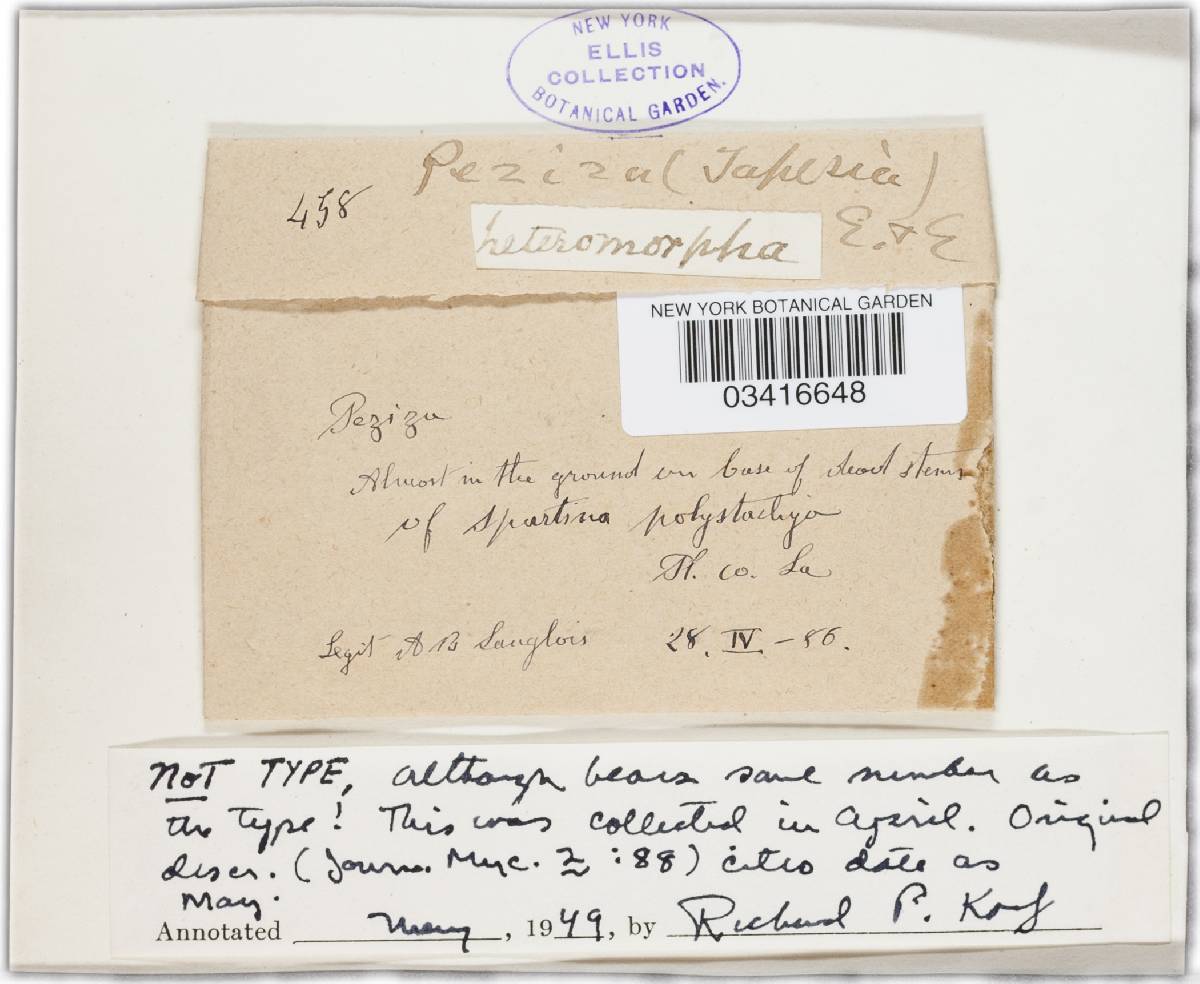 NEW YORK
ELLIS
COLLECTION
BOTANICAL GARDEN.
458 Peziza (Tapesia)
heteromorpha E. & E
NEW YORK BOTANICAL GARDEN
03416648
Peziza
Almost in the ground on base of dead stems
of Spartina polystachya
Pl. co. La
Legit A B Langlois 28. IV - 86.
NOT TYPE, although bears same number as
the type! This was collected in April. Original
descr. (Journ. Myc. 2 : 88) cites date as
May.
Annotated May, 1949, by Richard P. Korf